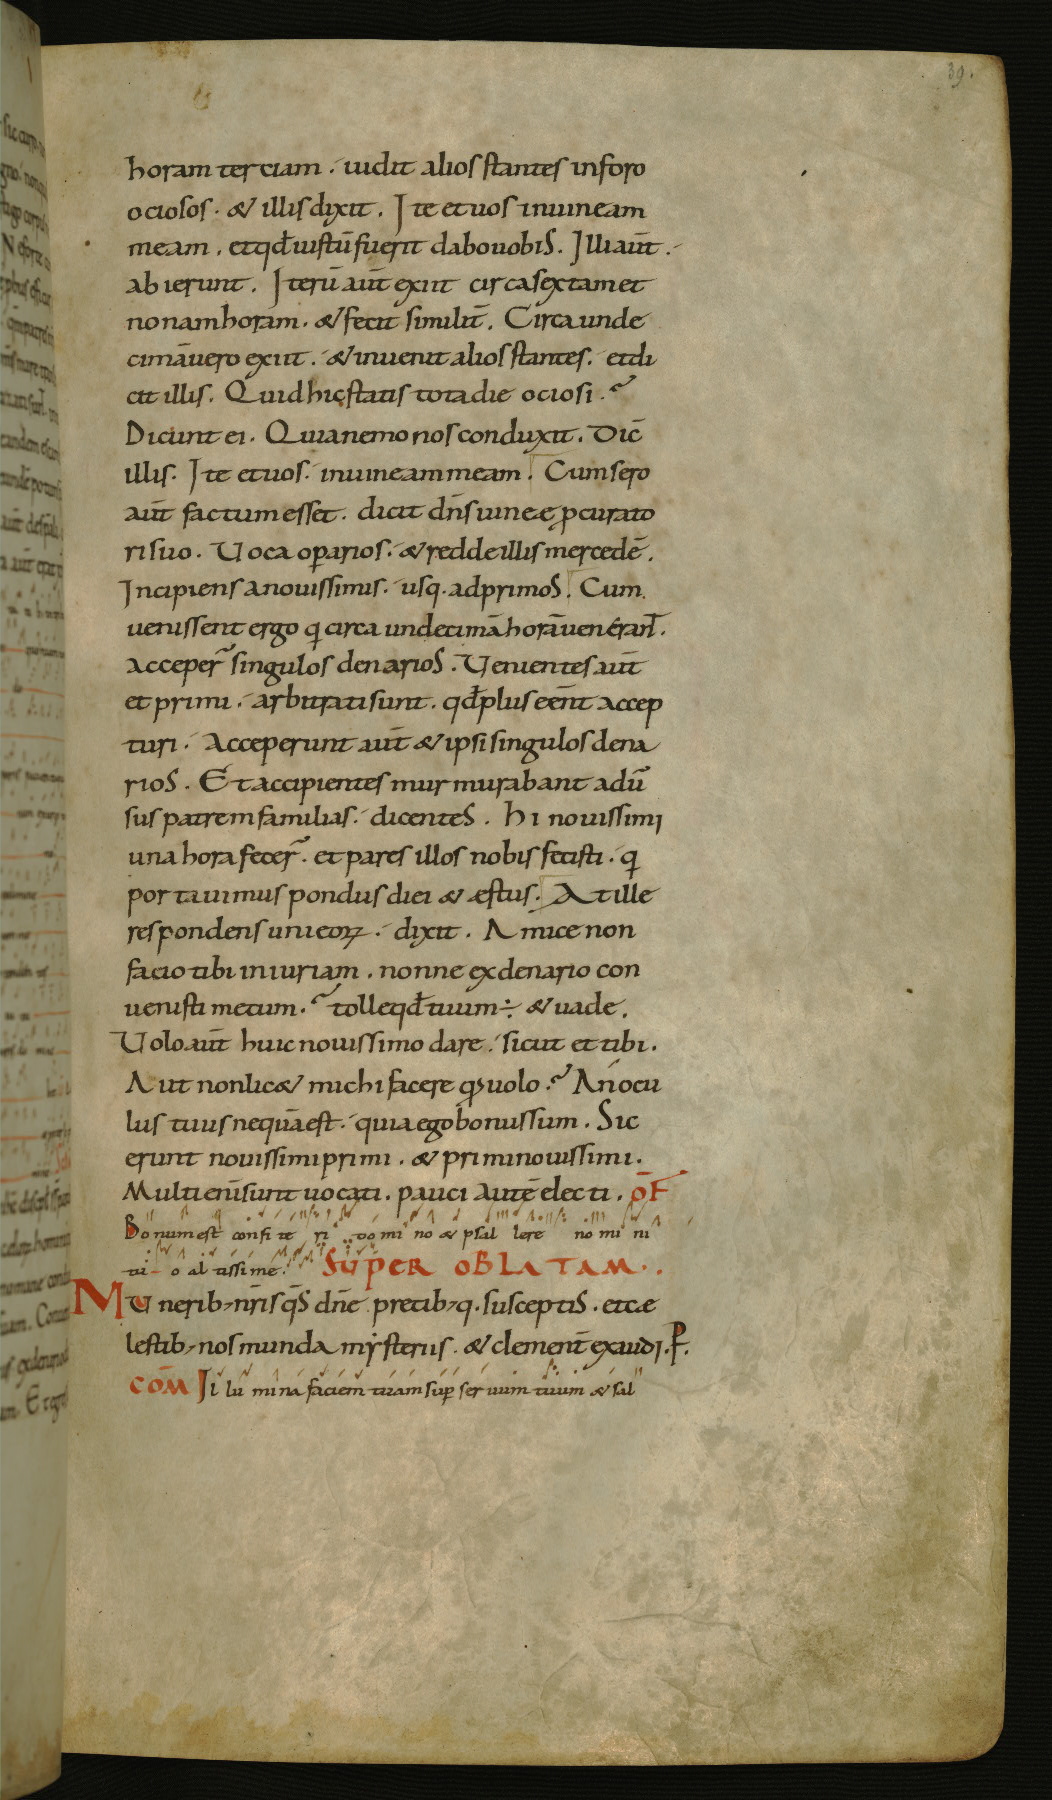 39.
horam terciam . uidit alios stantes inforo
ociosos . & illis dixit . Ite et uos inuineam
meam . et qđ iustū fuerit dabo uobis . Illi aūt .
abierunt . Iterū aūt exiit circa sextam et
nonam horam . & fecit similit̄ . Circa unde
cimā uero exiit . & inuenit alios stantes . et di
cit illis . Quid hic statis tota die ociosi .
Dicunt ei . Quia nemo nos conduxit . Dic̄
illis . Ite et uos . inuineam meam . Cum sero
aūt factum esset . dicit dn̄s uineę ꝓcurato
ri suo . Uoca oꝑarios . & redde illis mercedē .
Incipiens anouissimis . usq . ad primos . Cum
uenissent ergo q̇ circa undecimā horā uenerant̄ .
acceper̄ singulos denarios . Uenientes aūt
et primi . arbitrati sunt . qđ plus eēnt accep
turi . Acceperunt aūt & ipsi singulos dena
rios . Et accipientes murmurabant adū
sus patrem familias . dicentes . hi nouissimi
una hora fecer̄ . et pares illos nobis fecisti . q̇
portauimus pondus diei & æstus . At ille
respondens uni eoꝝ . dixit . Amice non
facio tibi iniuriam . nonne ex denario con
uenisti mecum . tolle qđ tuum ÷ & uade .
Uolo aūt huic nouissimo dare . sicut et tibi .
Aut non lic& michi facere qđ uolo . An ocu
lus tuus nequā est . quia ego bonus sum . Sic
erunt nouissimi primi . & primi nouissimi .
Multi enī sunt uocati . pauci autē electi . OF̄
Bonum est confi te ri do mi no & psal lere no mi ni
tu o al tissime . SUPER OBLATAM .
Munerib; nr̄is qs̄ dn̄e precib;q . susceptis . et cæ
lestib; nos munda mysteriis . & clement̄ exaudi . P̄.
COM̄ Ilu mi na faciem tuam suꝑ ser uum tuum & sal